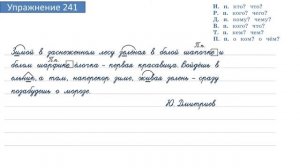 Упражнение 241
И. п. кто? что?
Р. п. кого? чего?
Д. п. кому? чему?
В. п. кого? что?
Т. п. кем? чем?
П. п. о ком? о чём?
П.п.
Зимой в заснеженном лесу зелёная в белой шапочке и
П.п.
белом шарфике ёлочка - первая красавица. Войдёшь в
ельник, а там, наперекор зиме, живая зелень - сразу
позабудешь о морозе.
Ю. Дмитриев